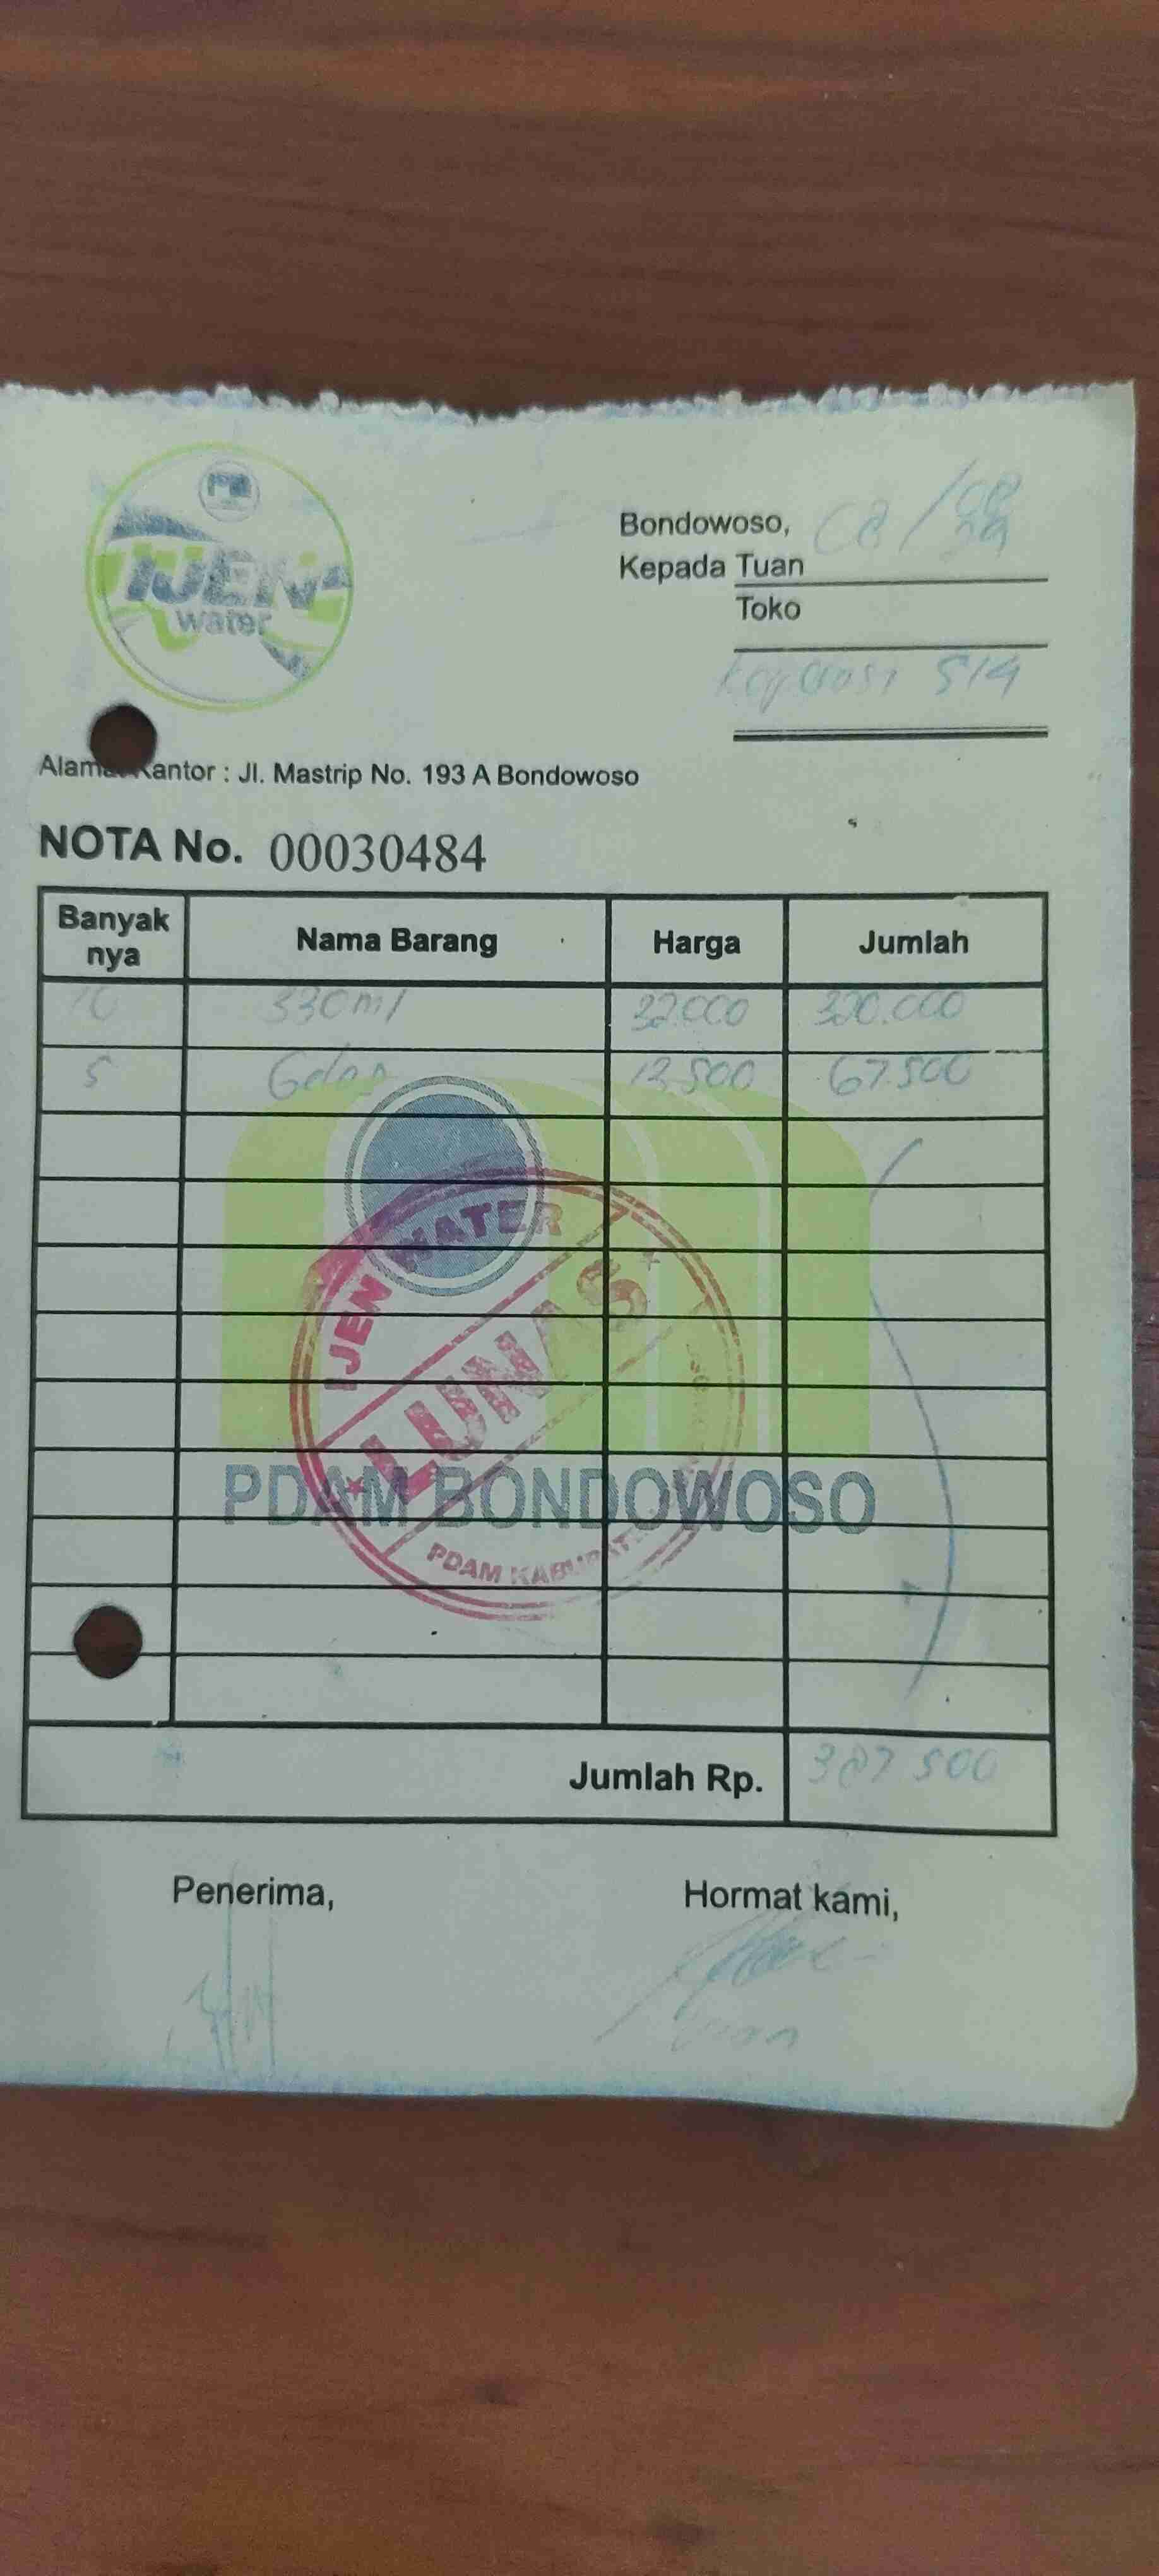 IJEN
water
Bondowoso, 08/08
24
Kepada Tuan
Toko
Koperasi 514
Kantor : Jl. Mastrip No. 193 A Bondowoso
NOTA No. 00030484
Banyak nya Nama Barang Harga Jumlah
10 330 ml 32.000 320.000
5 Galon 13.500 67.500
IJEN WATER
LUNAS
PDAM BONDOWOSO
PDAM KABUPATEN
Jumlah Rp. 387 500
Penerima, Hormat kami,